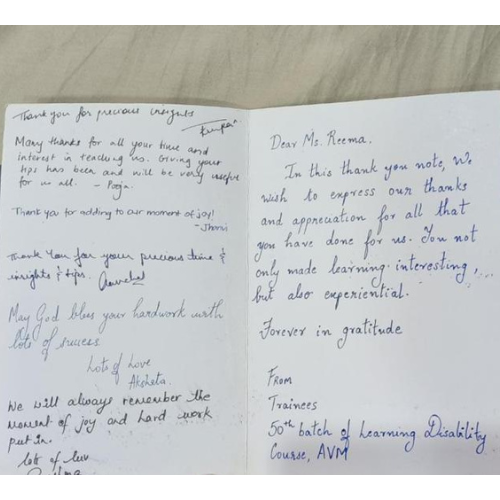 Thank you for precious insights
Many thanks for all your time and
interest in teaching us. Giving your
tips has been and will be very useful
for us all. - Pooja.
Thank you for adding to our moment of joy!
Thank You for your precious time &
insights & tips.
May God bless your hardwork with
lots of success
Lots of Love
Aksheta.
We will always remember the
moment of joy and hard work
put in.
lots of luv
Dear Ms. Reema.
In this thank you note, We
wish to express our thanks
and appreciation for all that
you have done for us. You not
only made learning interesting,
but also experiential.
Forever in gratitude
From
Trainees
50th batch of Learning Disability
Course, AVM